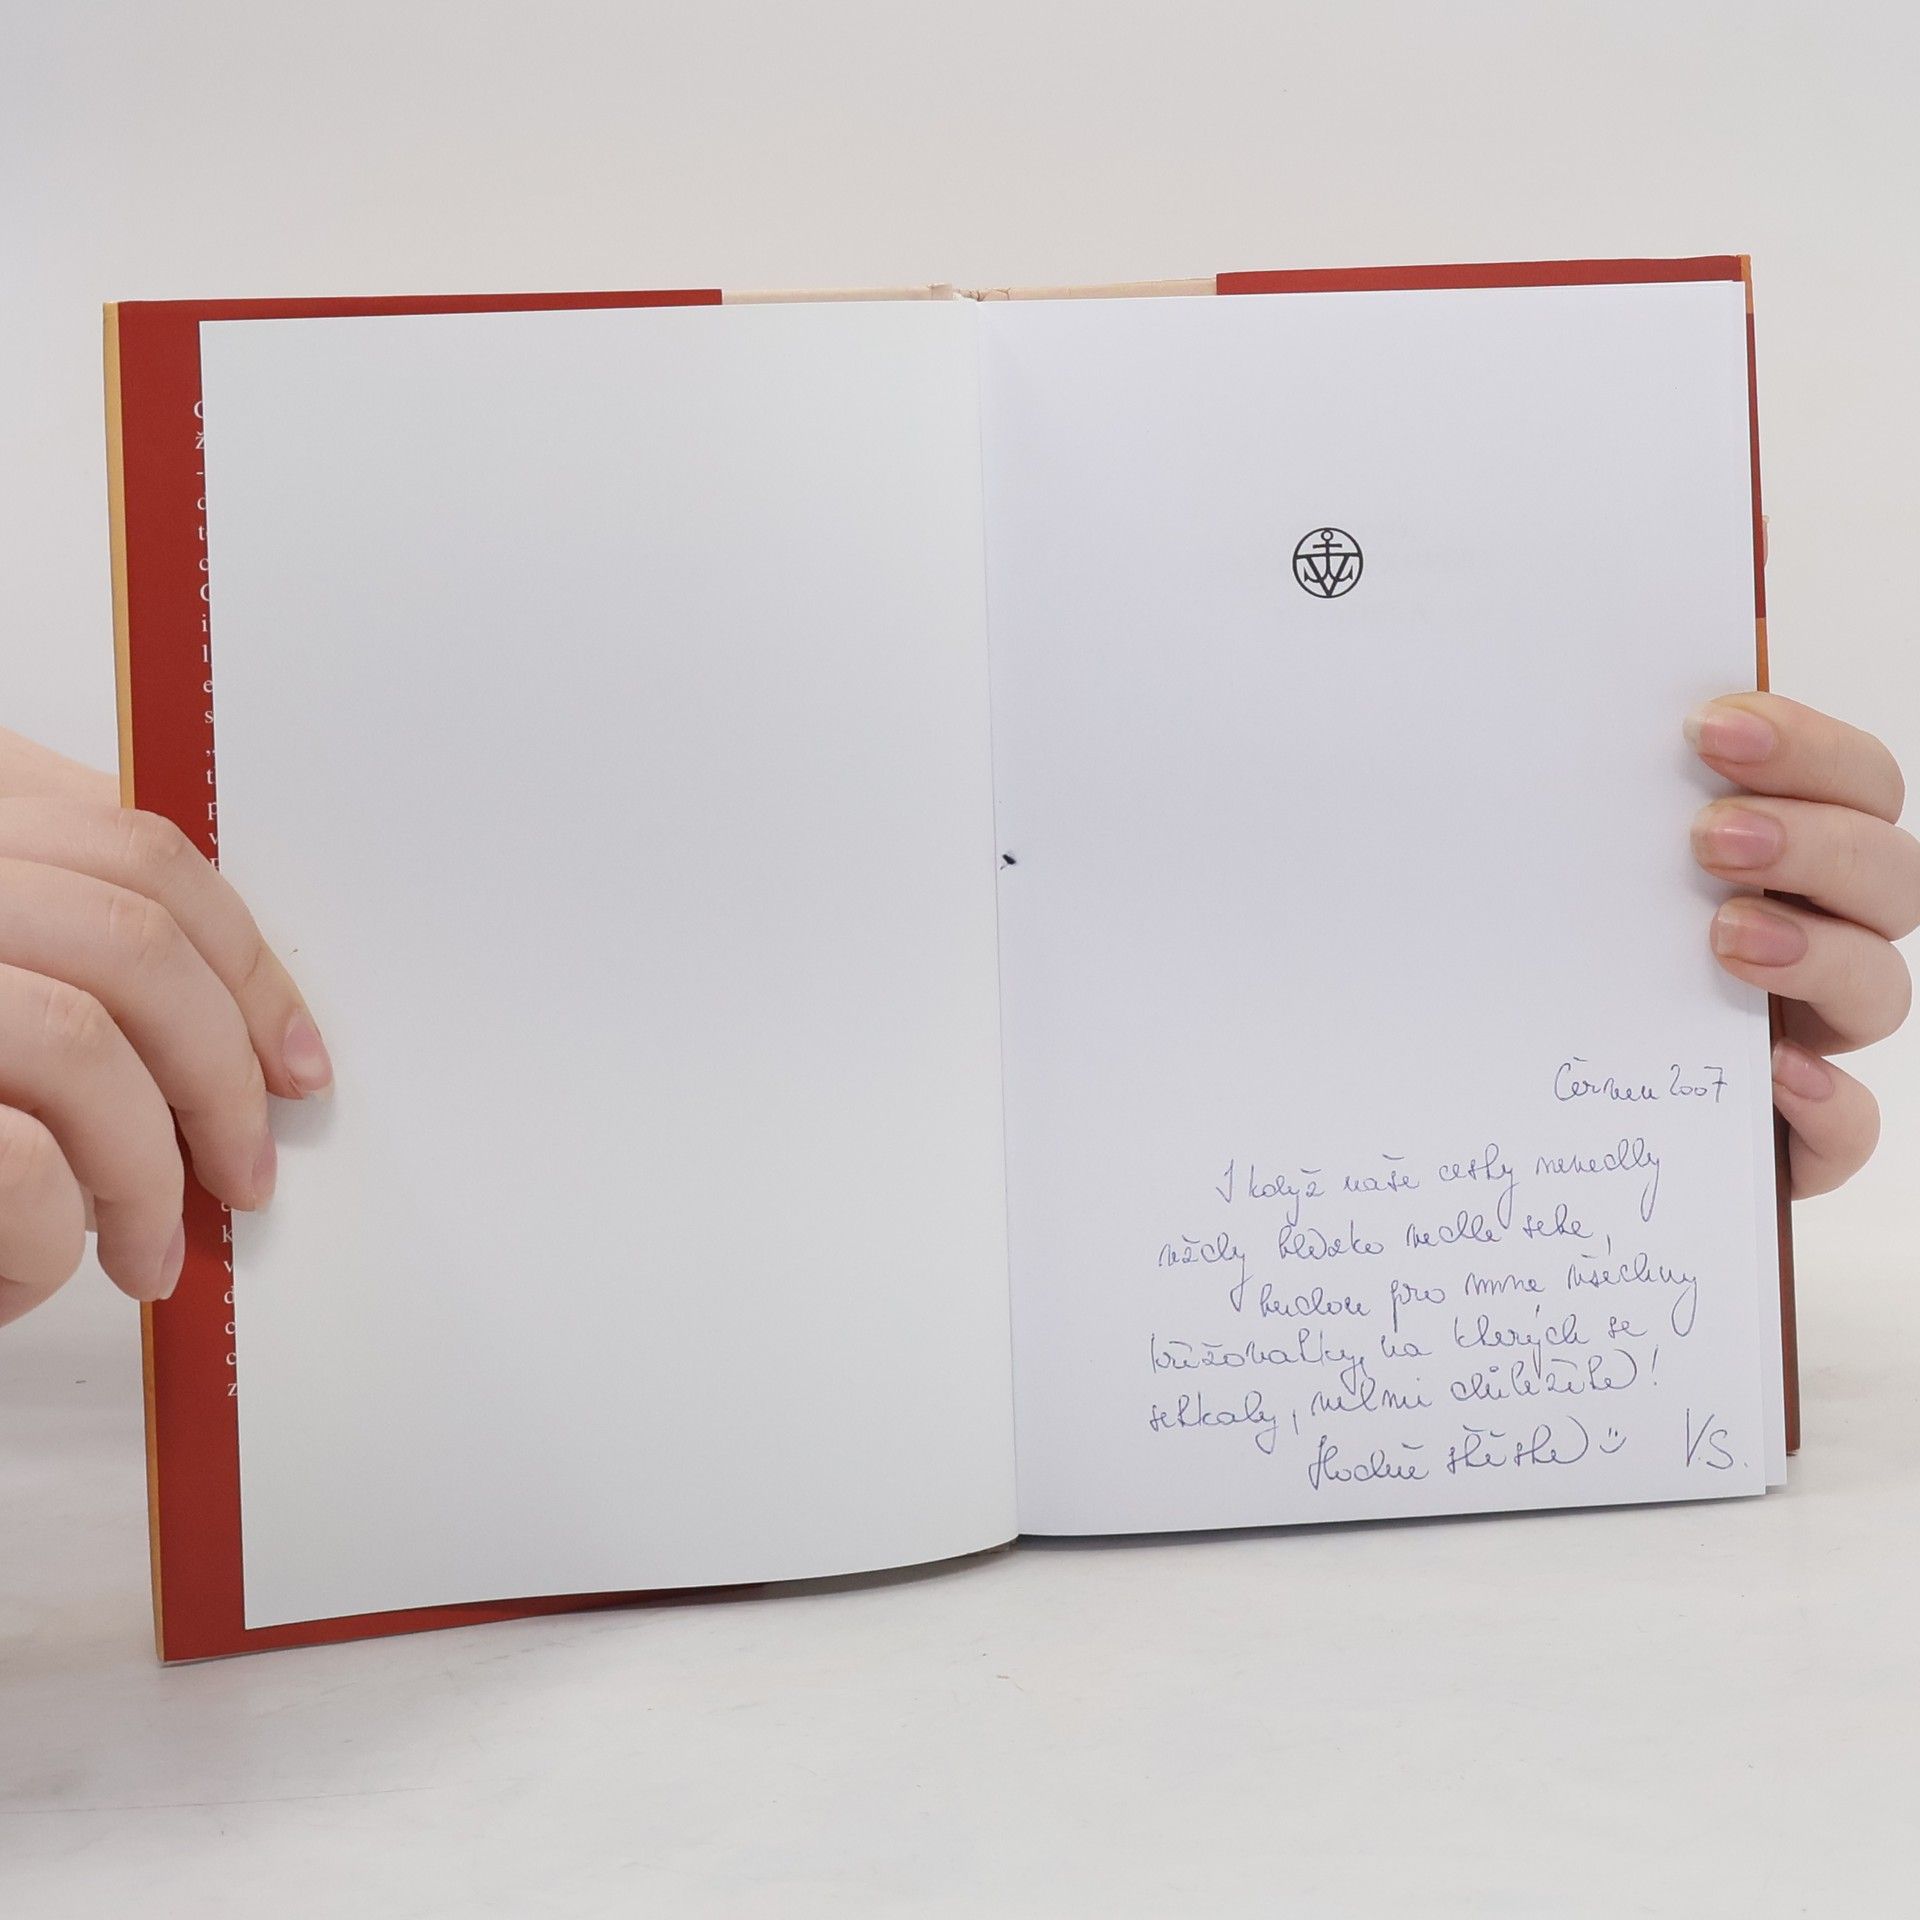 Červen 2007
I když naše cesty nevedly
vždy blízko vedle sebe,
budou pro mne všechny
křižovatky, na kterých se
setkaly, velmi důležité!
Hodně štěstí V.S.